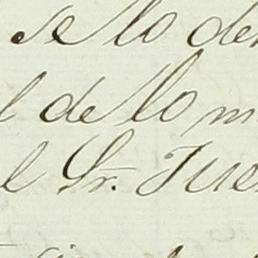 se lo de
l de lo m
l Sr. Jue